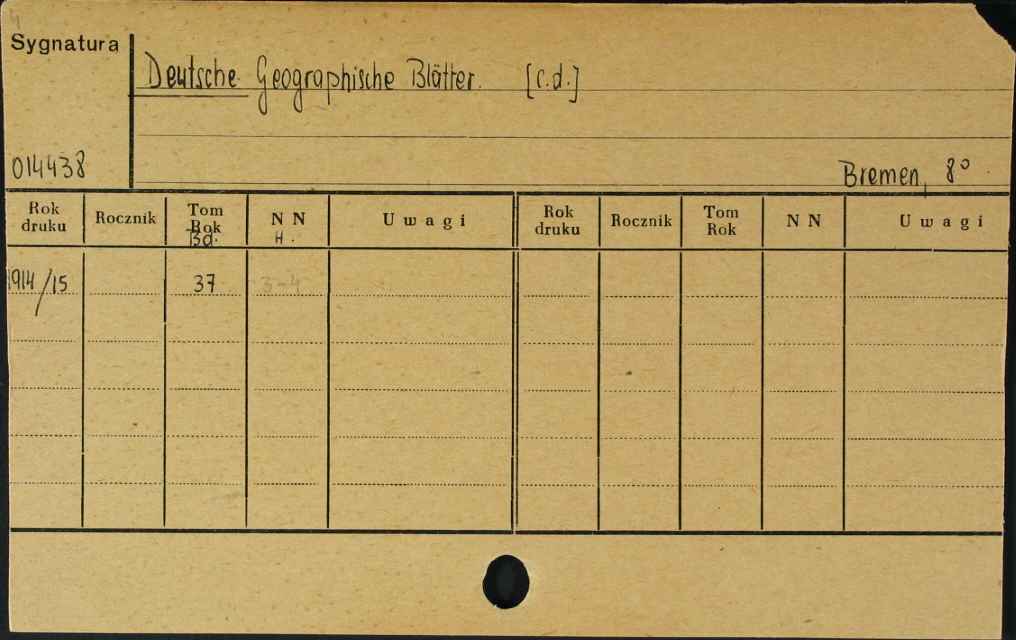 Sygnatura
Deutsche Geographische Blätter. [c.d.]
014438
Bremen, 8°
Rok druku Rocznik Tom Rok Bd. N N H. Uwagi Rok druku Rocznik Tom Rok N N Uwagi
1914/15 37 3-4